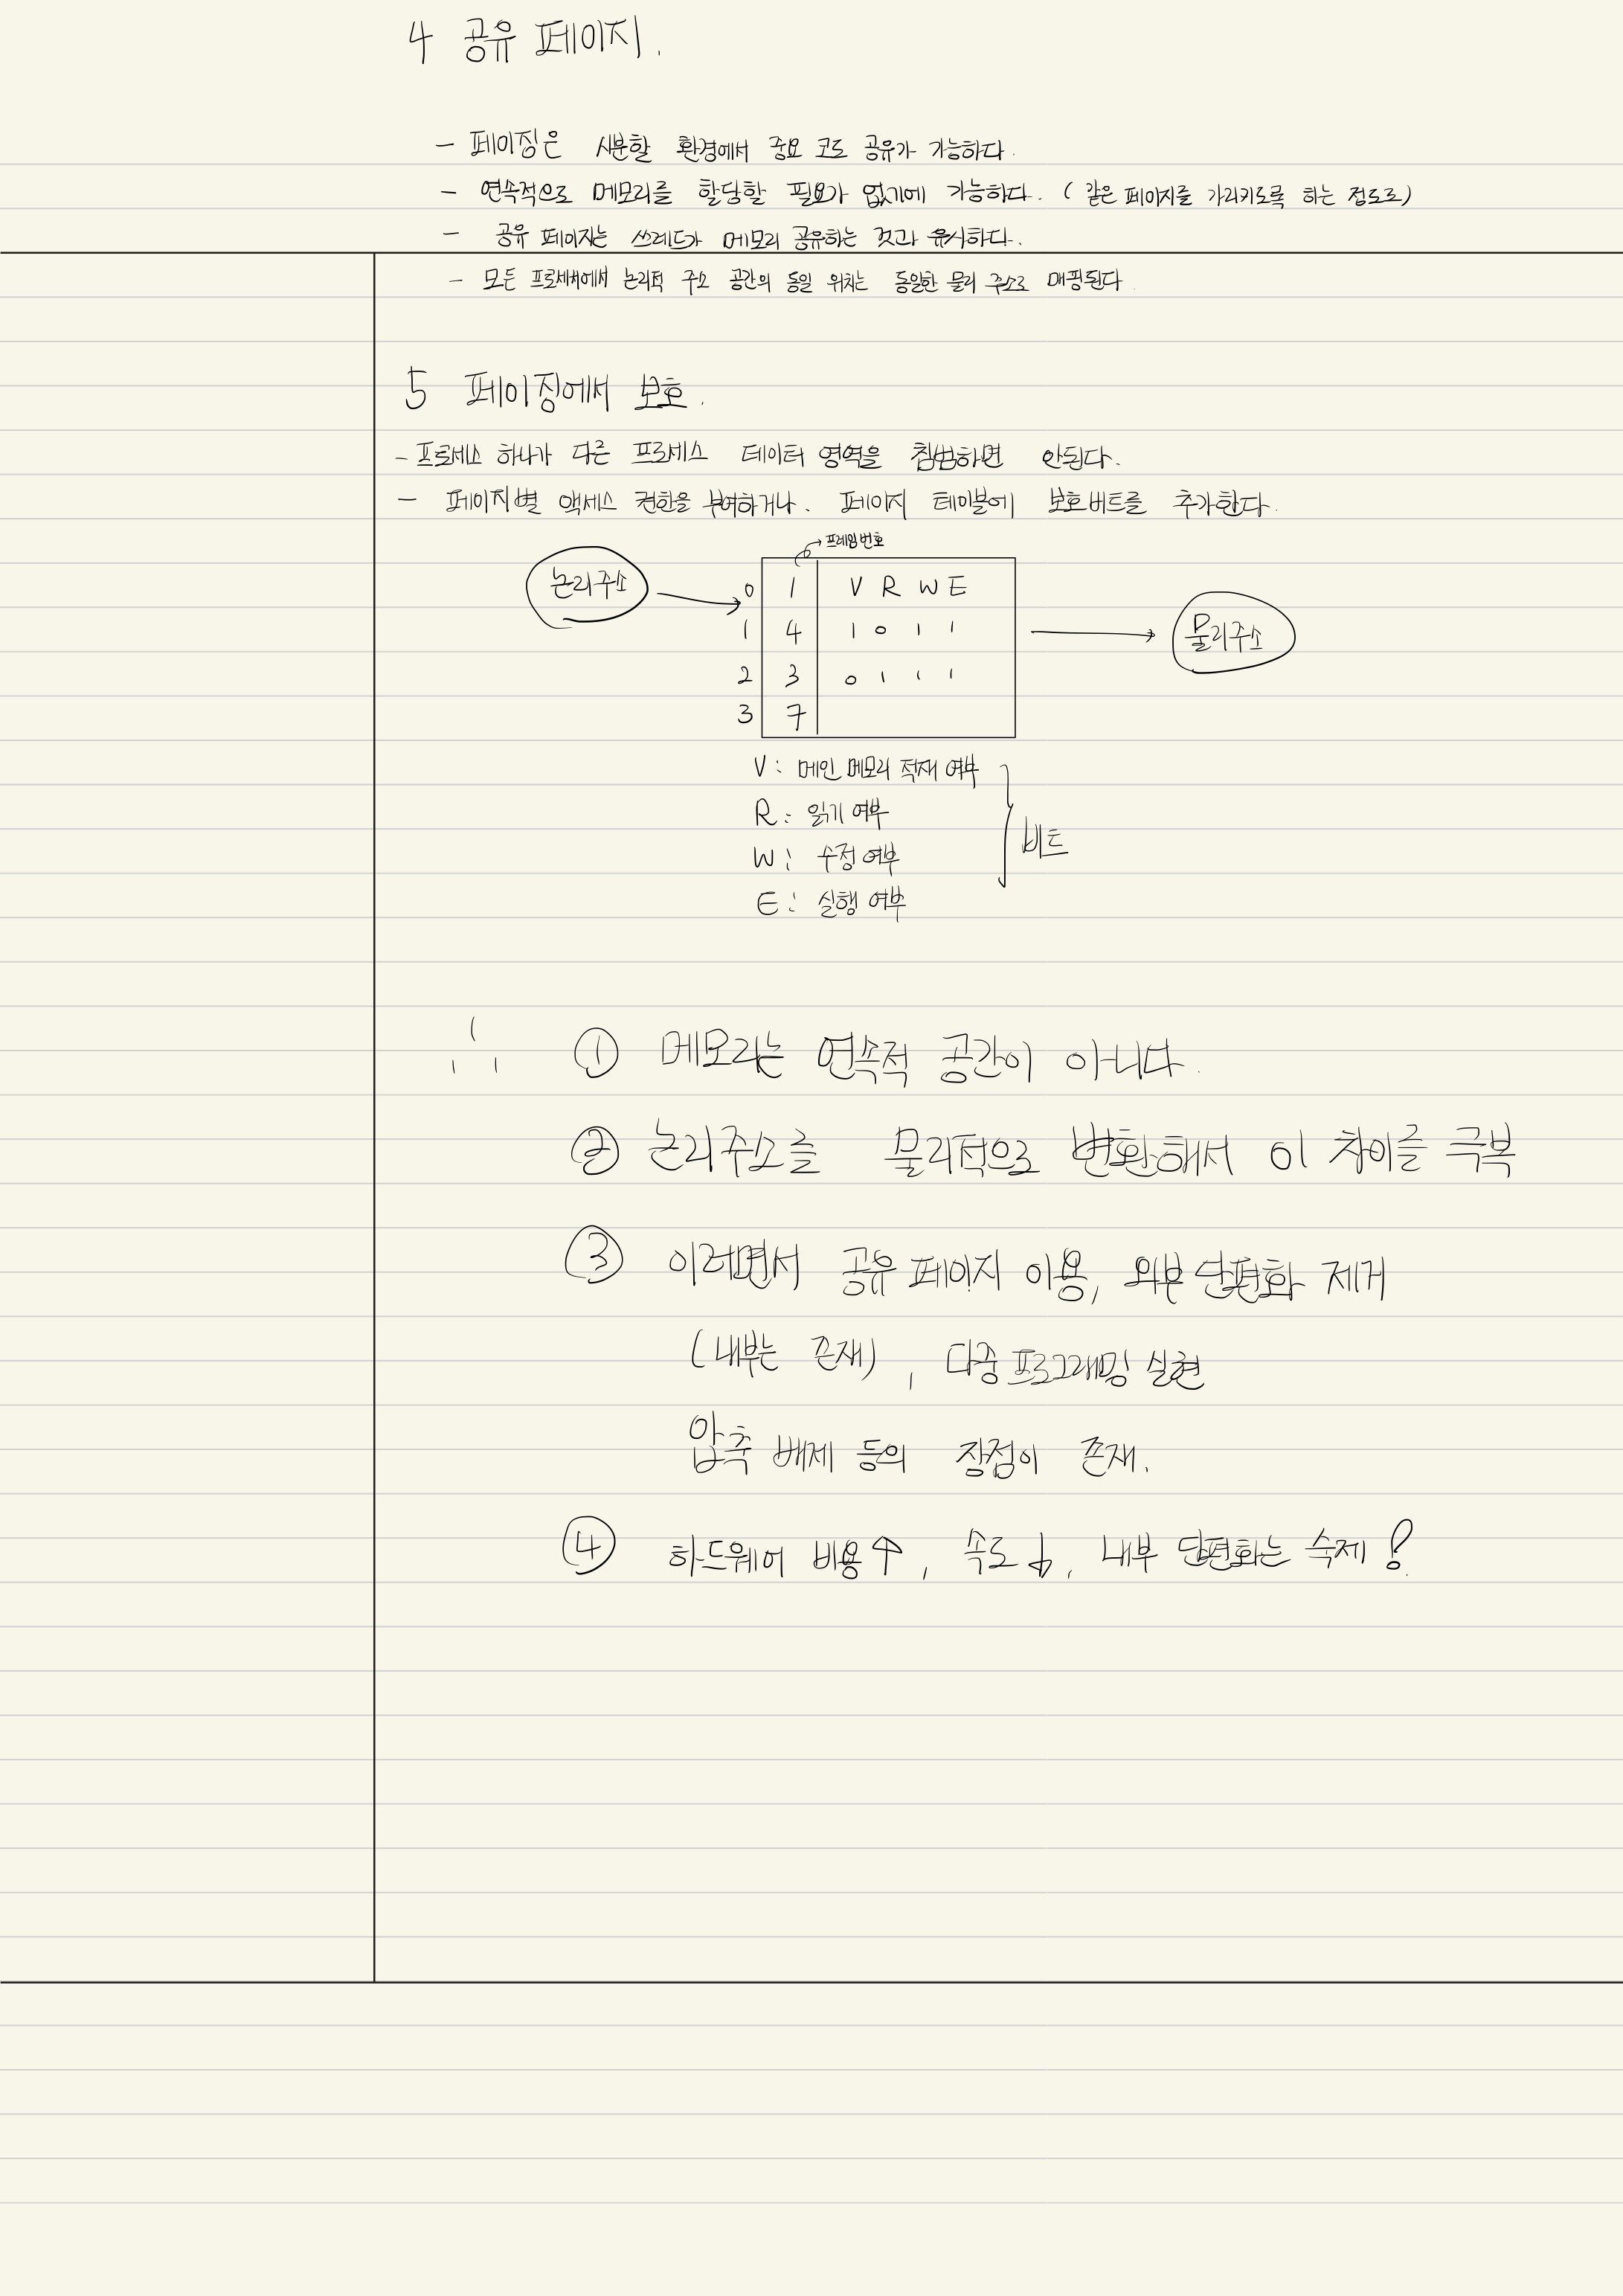 4 공유 페이지.
- 페이징은 시분할 환경에서 중요 코드 공유가 가능하다.
- 연속적으로 메모리를 할당할 필요가 없기에 가능하다. (같은 페이지를 가리키도록 하는 정도로)
- 공유 페이지는 쓰레드가 메모리 공유하는 것과 유사하다.
- 모든 프로세서에서 논리적 주소 공간의 동일 위치는 동일한 물리 주소로 매핑된다
5 페이징에서 보호.
- 프로세스 하나가 다른 프로세스 데이터 영역을 침범하면 안된다.
- 페이지별 액세스 권한을 부여하거나. 페이지 테이블에 보호비트를 추가한다.
→ 프레임 번호
논리주소
0 1 V R W E
1 4 1 0 1 1
물리주소
2 3 0 1 1 1
3 7
V: 메인 메모리 적재 여부
R: 읽기 여부
비트
W: 수정 여부
E: 실행 여부
∴ ① 메모리는 연속적 공간이 아니다.
② 논리주소를 물리적으로 변환해서 이 차이를 극복
③ 이러면서 공유 페이지 이용, 외부 단편화 제거
(내부는 존재), 다중 프로그래밍 실현
압축 배제 등의 장점이 존재.
④ 하드웨어 비용↑, 속도↓, 내부 단편화는 숙제!